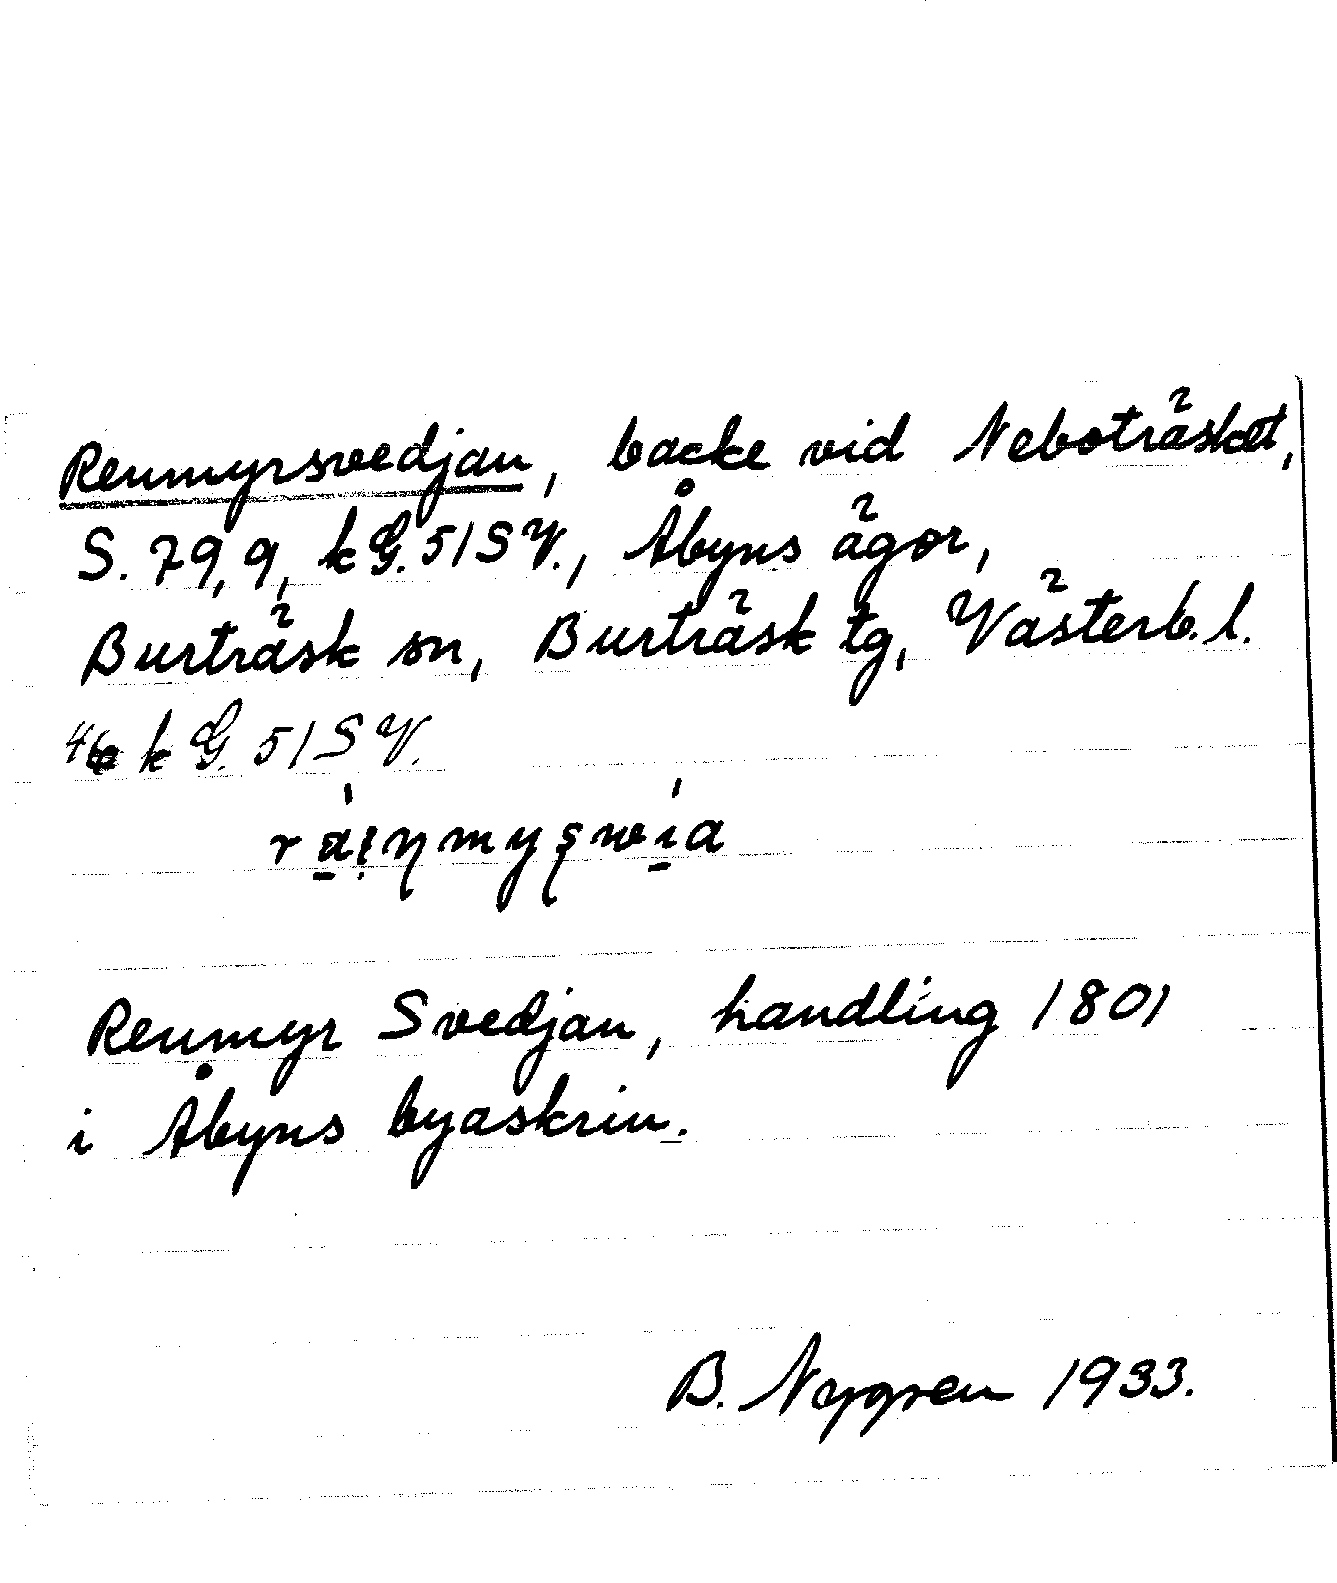 Renmyrsvedjan, backe vid Neboträsket,
S. 79,9, kG. 51SV., Åbyns ägor,
Burträsk sn, Burträsk tg, Västerb. l.
k G. 51SV.
Renmyr Svedjan, handling 1801
i Åbyns byaskrin.
B. Nygren 1933.